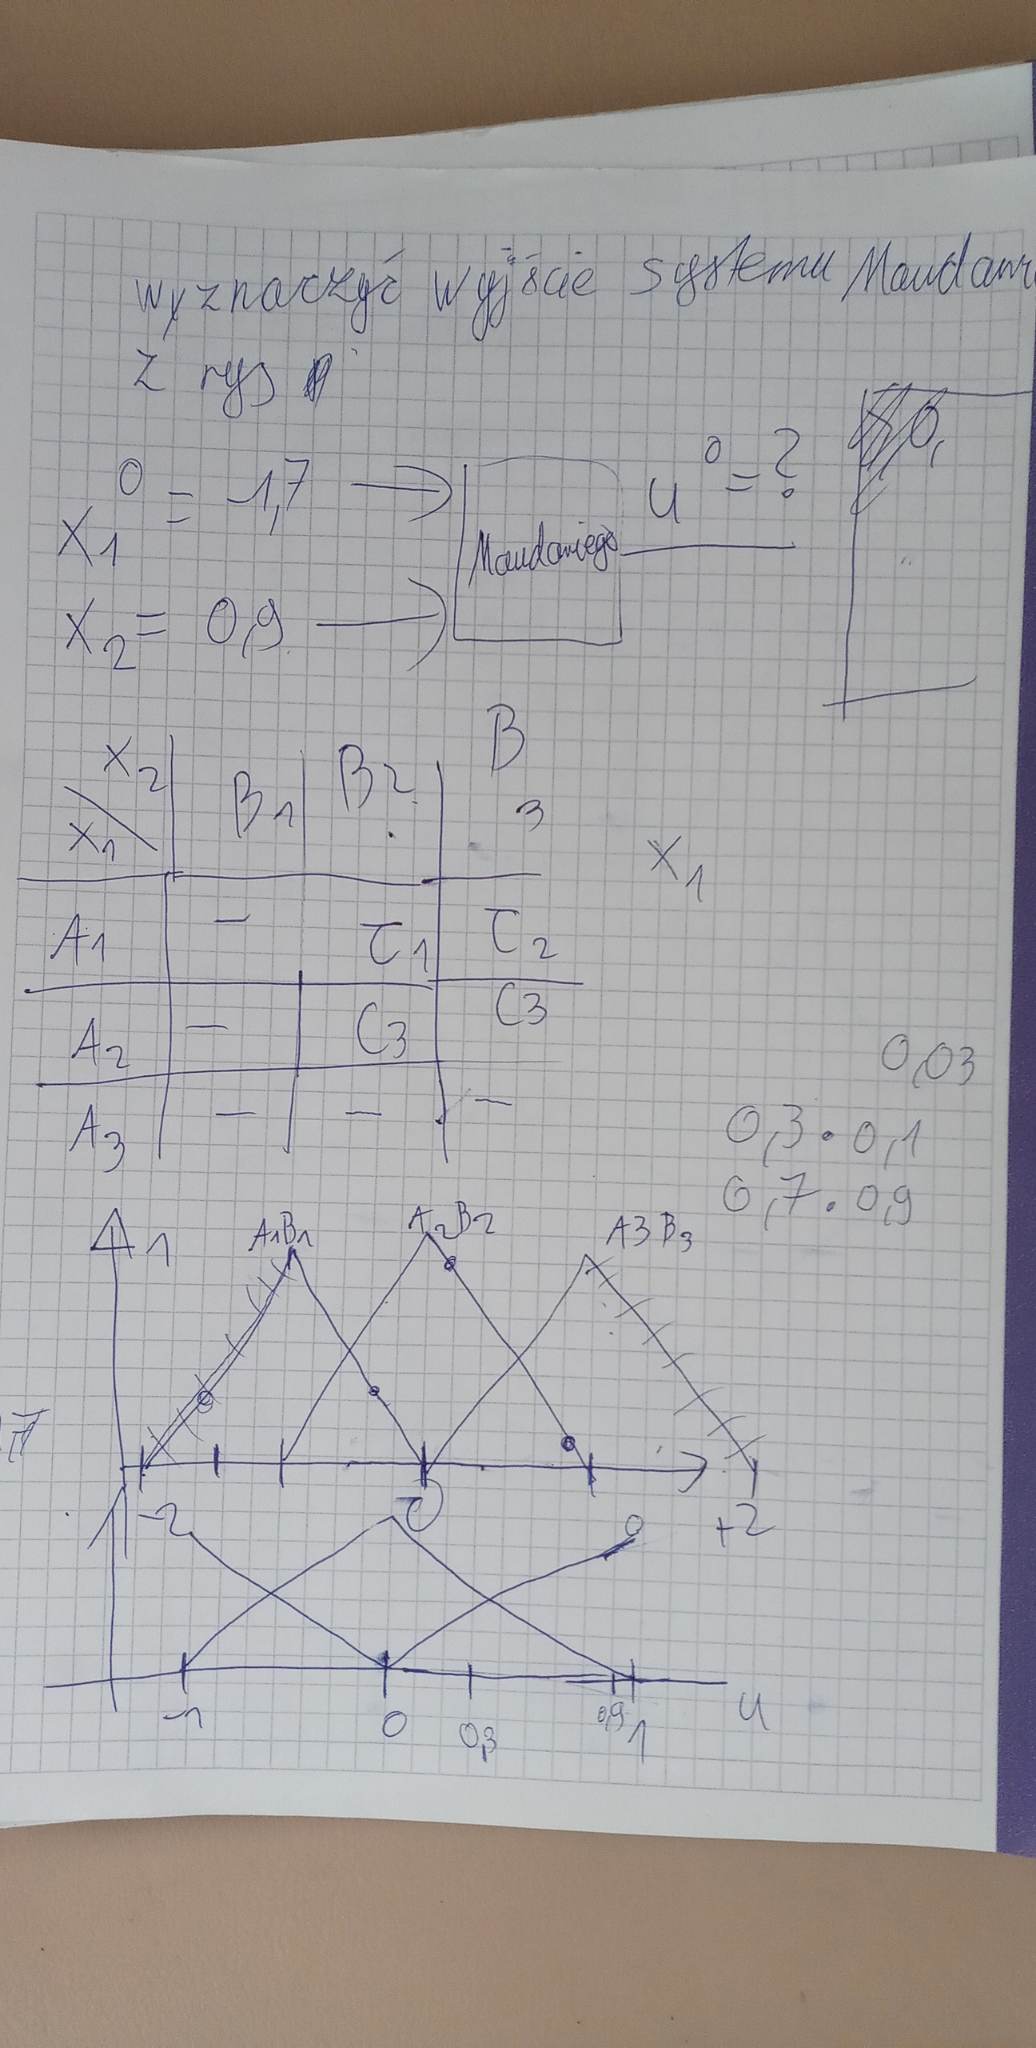 wyznaczyć wyjście systemu Mamdani
z rys
X₁⁰ = -1,7 → Mamdaniego u⁰ = ?
X₂ = 0,9 →
0,
X₂ B₁ B₂ B₃
X₁
X₁
A₁ - C₁ C₂
A₂ - C₃ C₃
A₃ - - -
0,03
0,3 · 0,1
0,7 · 0,9
1 A₁B₁ A₂B₂ A3B₃
,7
-2 0 +2
1
-1 0 0,3 0,9 1 u